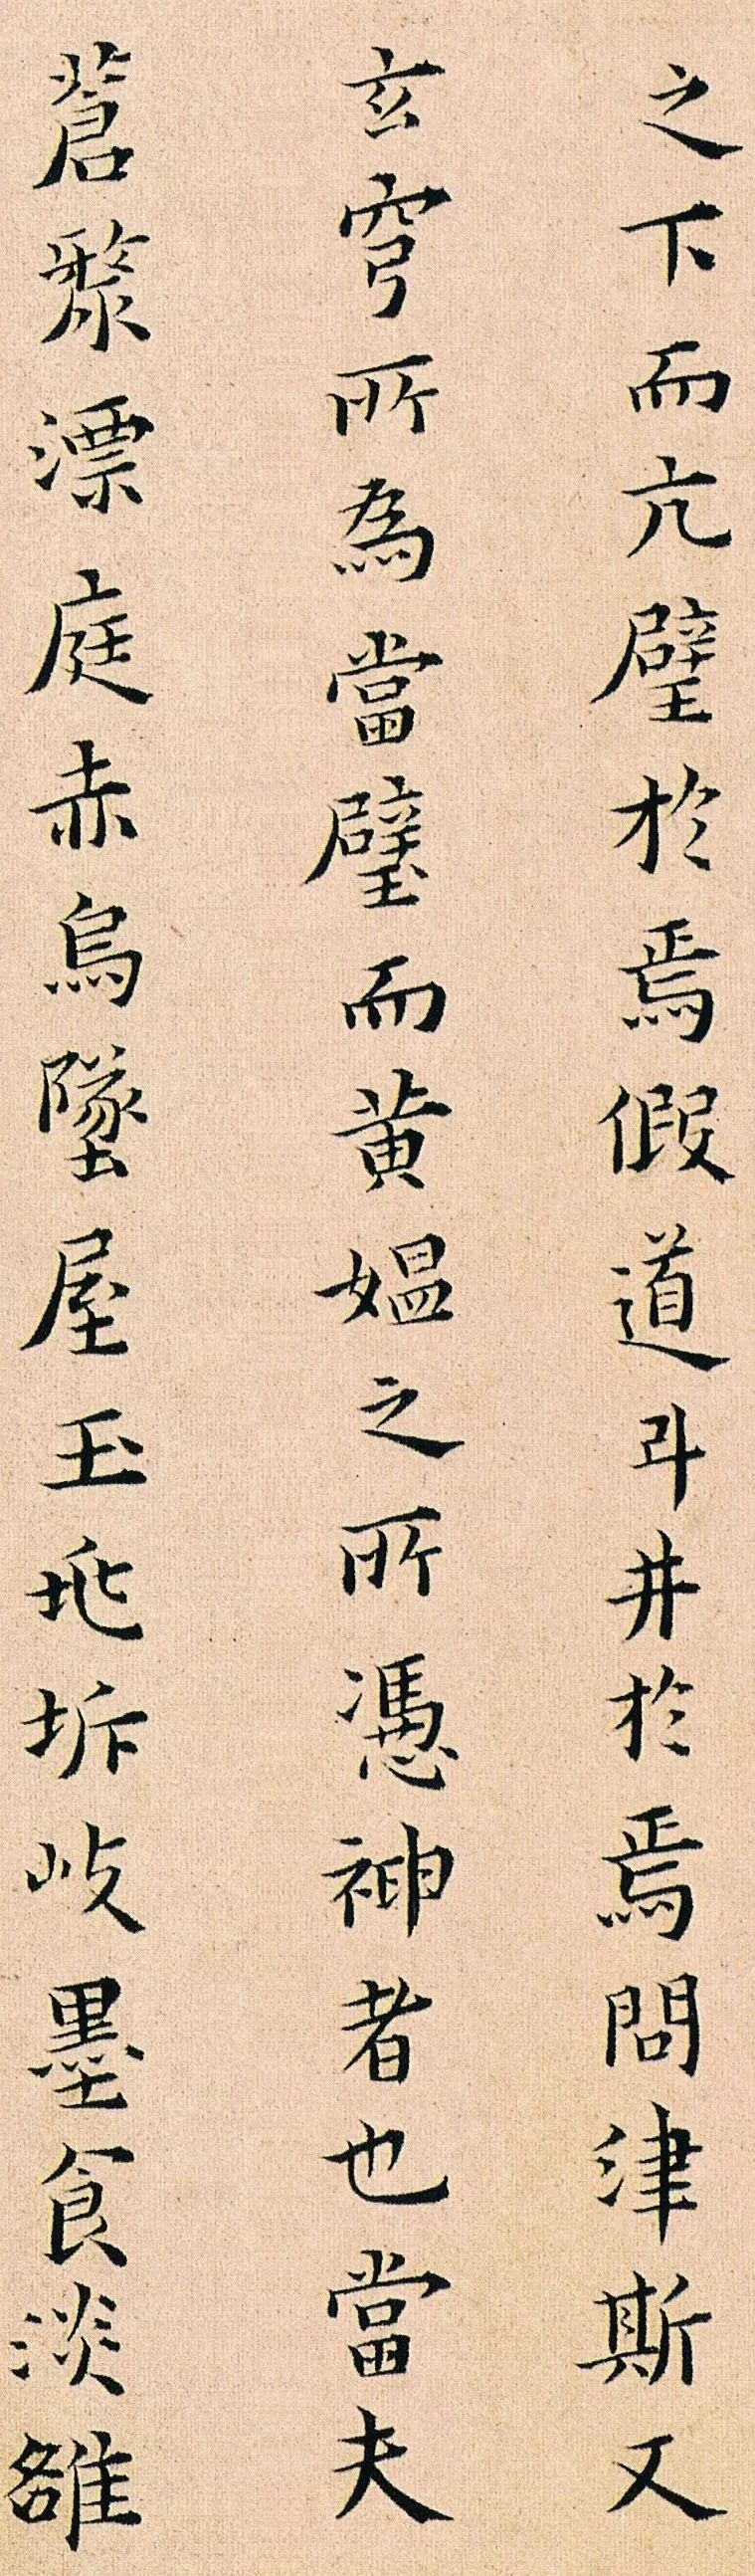 之下而亢璧於焉假道斗井於焉問津斯又
玄穹所為當璧而黃媼之所憑神者也當夫
蒼漦漂庭赤烏墜屋玉垗坼岐墨食淡雒